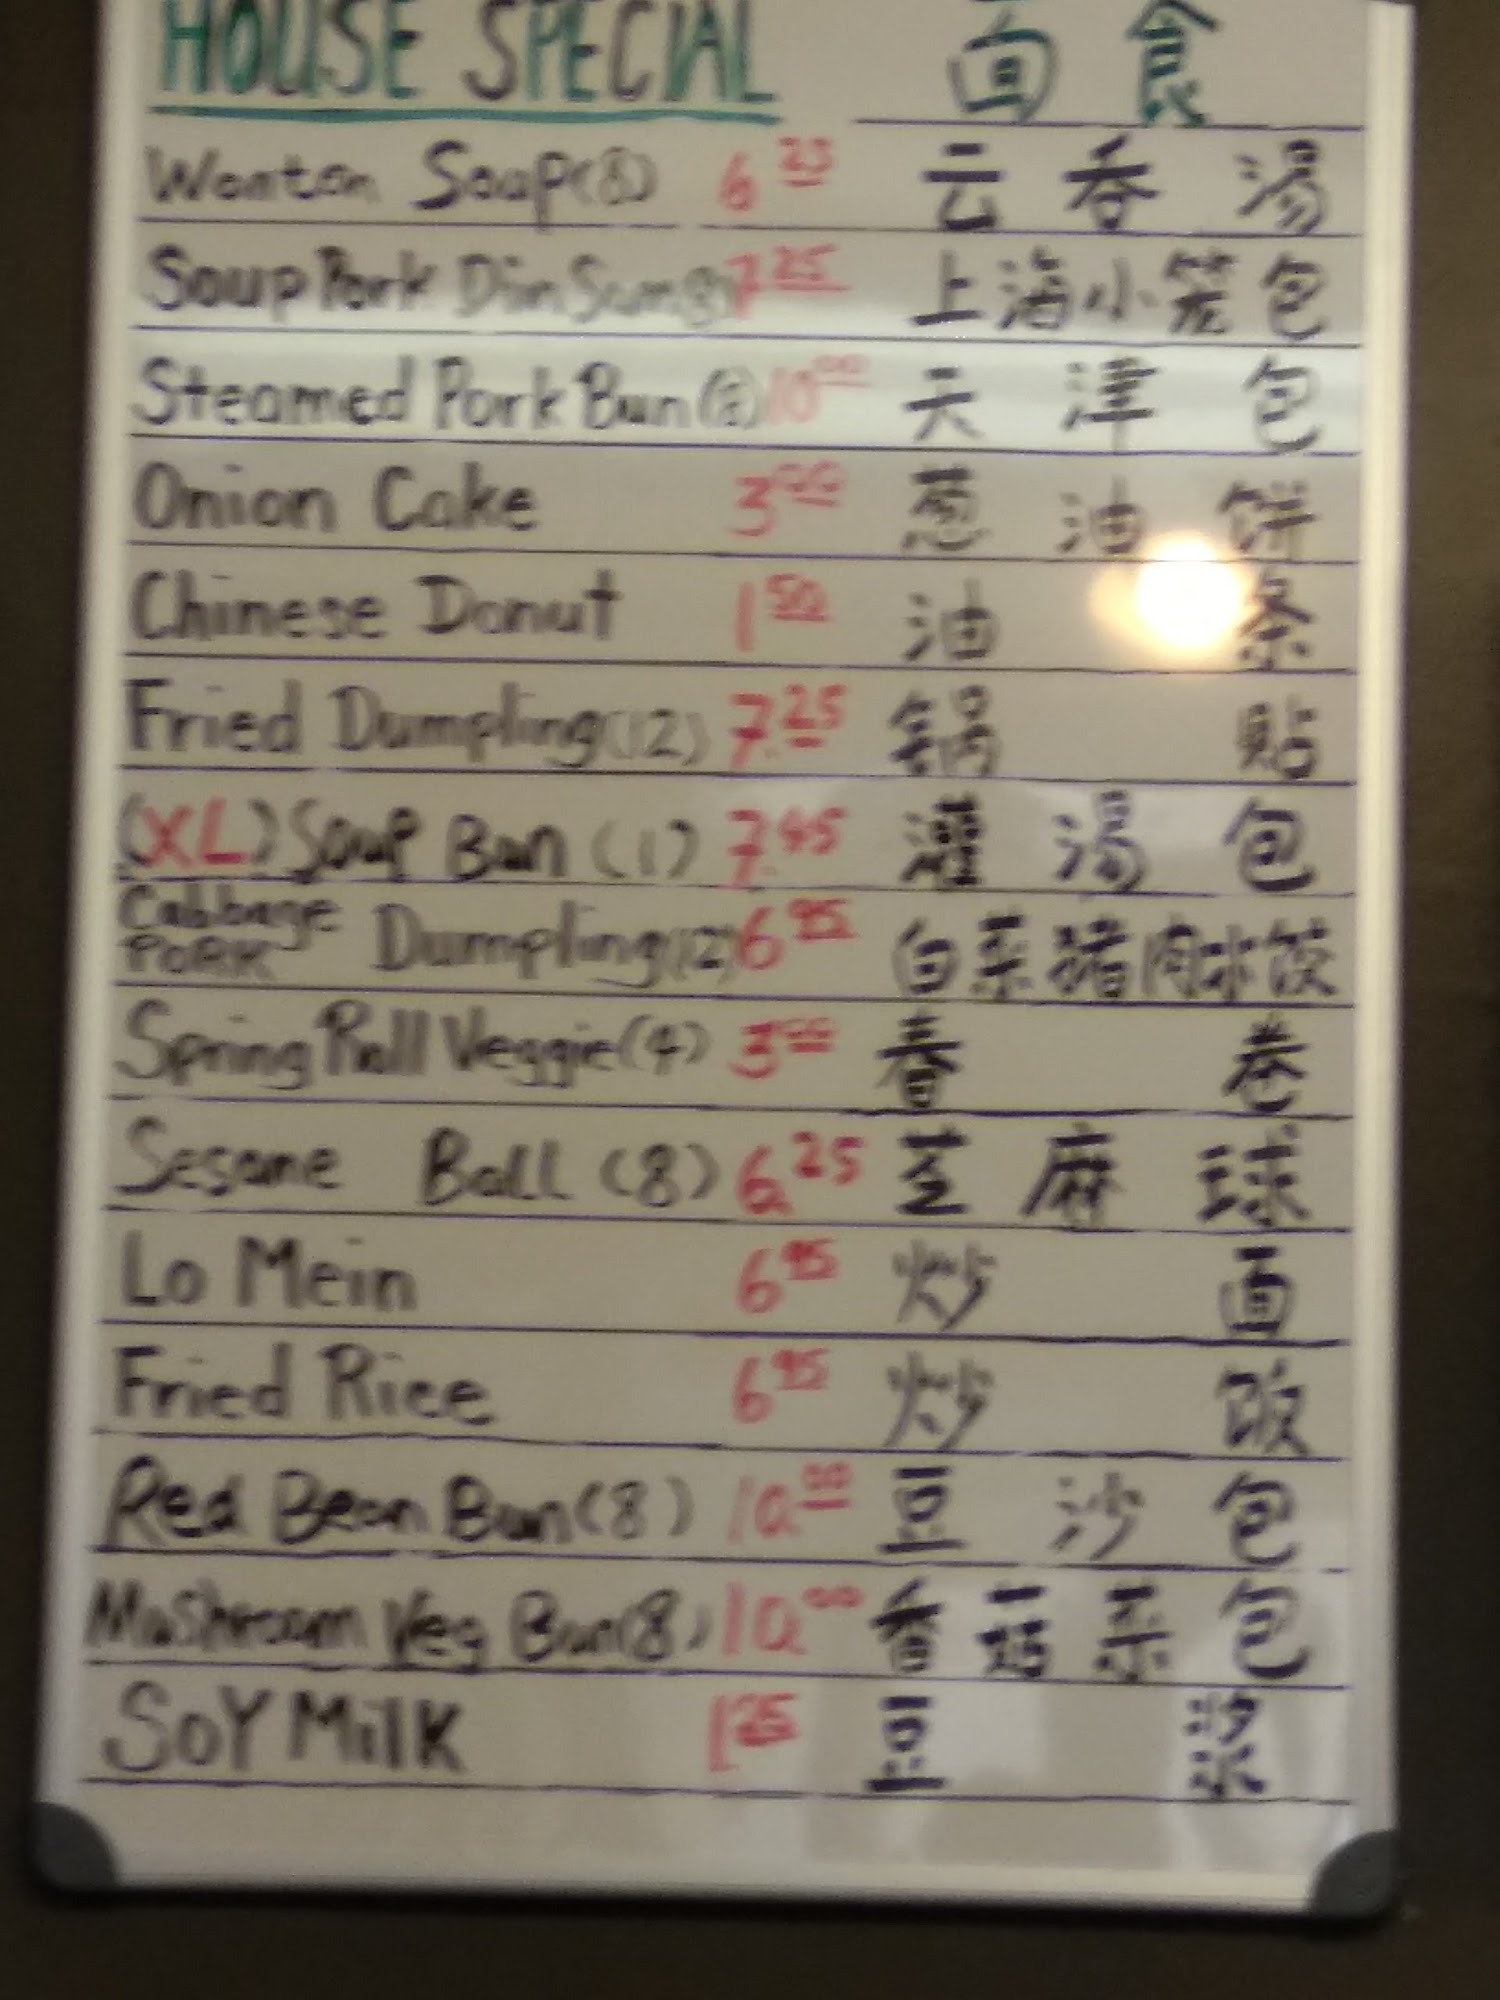 HOUSE SPECIAL 面食
Wonton Soup(8) 6 25 云吞汤
Soup Pork Dim Sum(8) 7 25 上海小笼包
Steamed Pork Bun 10 00 天津包
Onion Cake 3 00 葱油饼
Chinese Donut 1 50 油条
Fried Dumpling(12) 7.25 锅贴
(XL) Soup Bun (1) 7.45 灌汤包
Cabbage PORK Dumpling(12) 6 95 白菜猪肉水饺
Spring Roll Veggie(4) 3 00 春卷
Sesame Ball (8) 6.25 芝麻球
Lo Mein 6 95 炒面
Fried Rice 6 95 炒饭
Red Bean Bun(8) 10.00 豆沙包
Mushroom Veg Bun(8) 10.00 香菇菜包
SOY MilK 1 25 豆浆